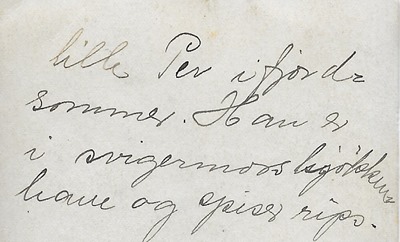 lille Per i fjord-
sommer. Han er
i svigermors kjøkken
have og spiser rips.